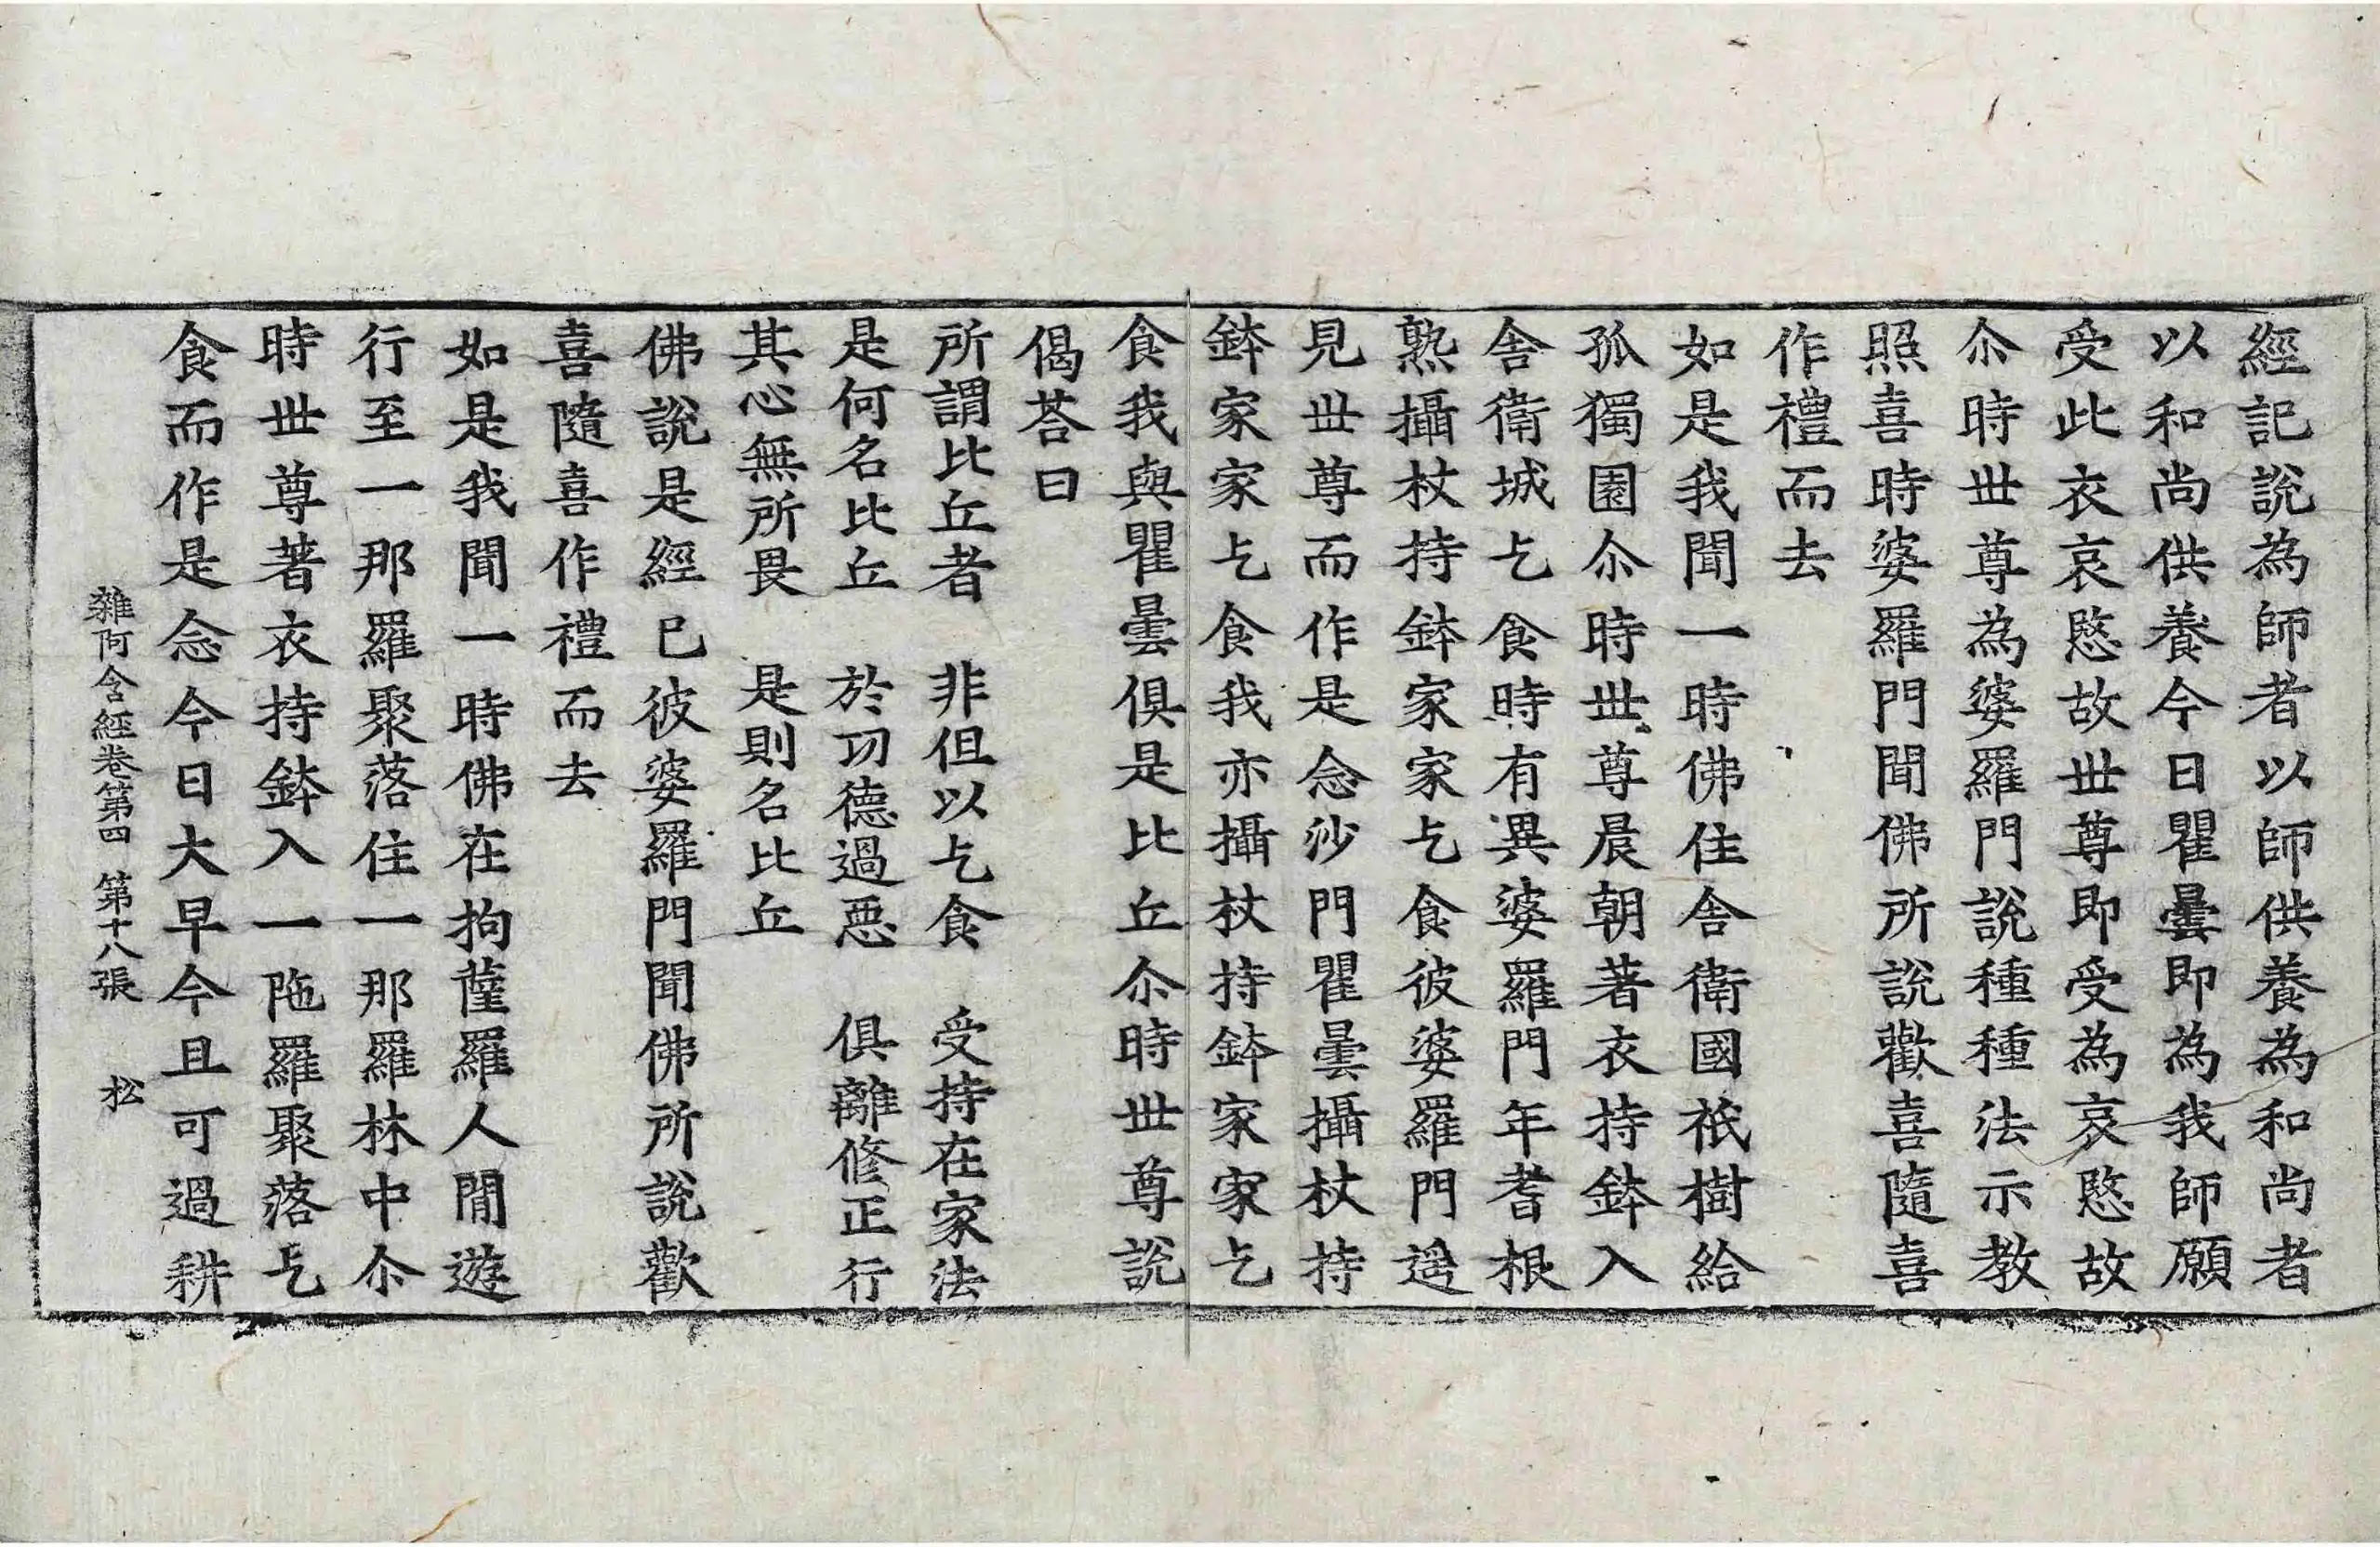 經記說為師者以師供養為和尚者
以和尚供養今日瞿曇即為我師願
受此衣哀愍故世尊即受為哀愍故
尒時世尊為婆羅門說種種法示教
照喜時婆羅門聞佛所說歡喜隨喜
作禮而去
如是我聞一時佛住舍衛國祇樹給
孤獨園尒時世尊晨朝著衣持鉢入
舍衛城乞食時有異婆羅門年耆根
熟攝杖持鉢家家乞食彼婆羅門遥
見世尊而作是念沙門瞿曇攝杖持
鉢家家乞食我亦攝杖持鉢家家乞
食我與瞿曇俱是比丘尒時世尊說
偈荅曰
所謂比丘者　非但以乞食　受持在家法
是何名比丘　於功德過惡　俱離修正行
其心無所畏　是則名比丘
佛說是經已彼婆羅門聞佛所說歡
喜隨喜作禮而去
如是我聞一時佛在拘薩羅人閒遊
行至一那羅聚落住一那羅林中尒
時世尊著衣持鉢入一陁羅聚落乞
食而作是念今日大早今且可過耕
雜阿含經卷第四　第十八張　松